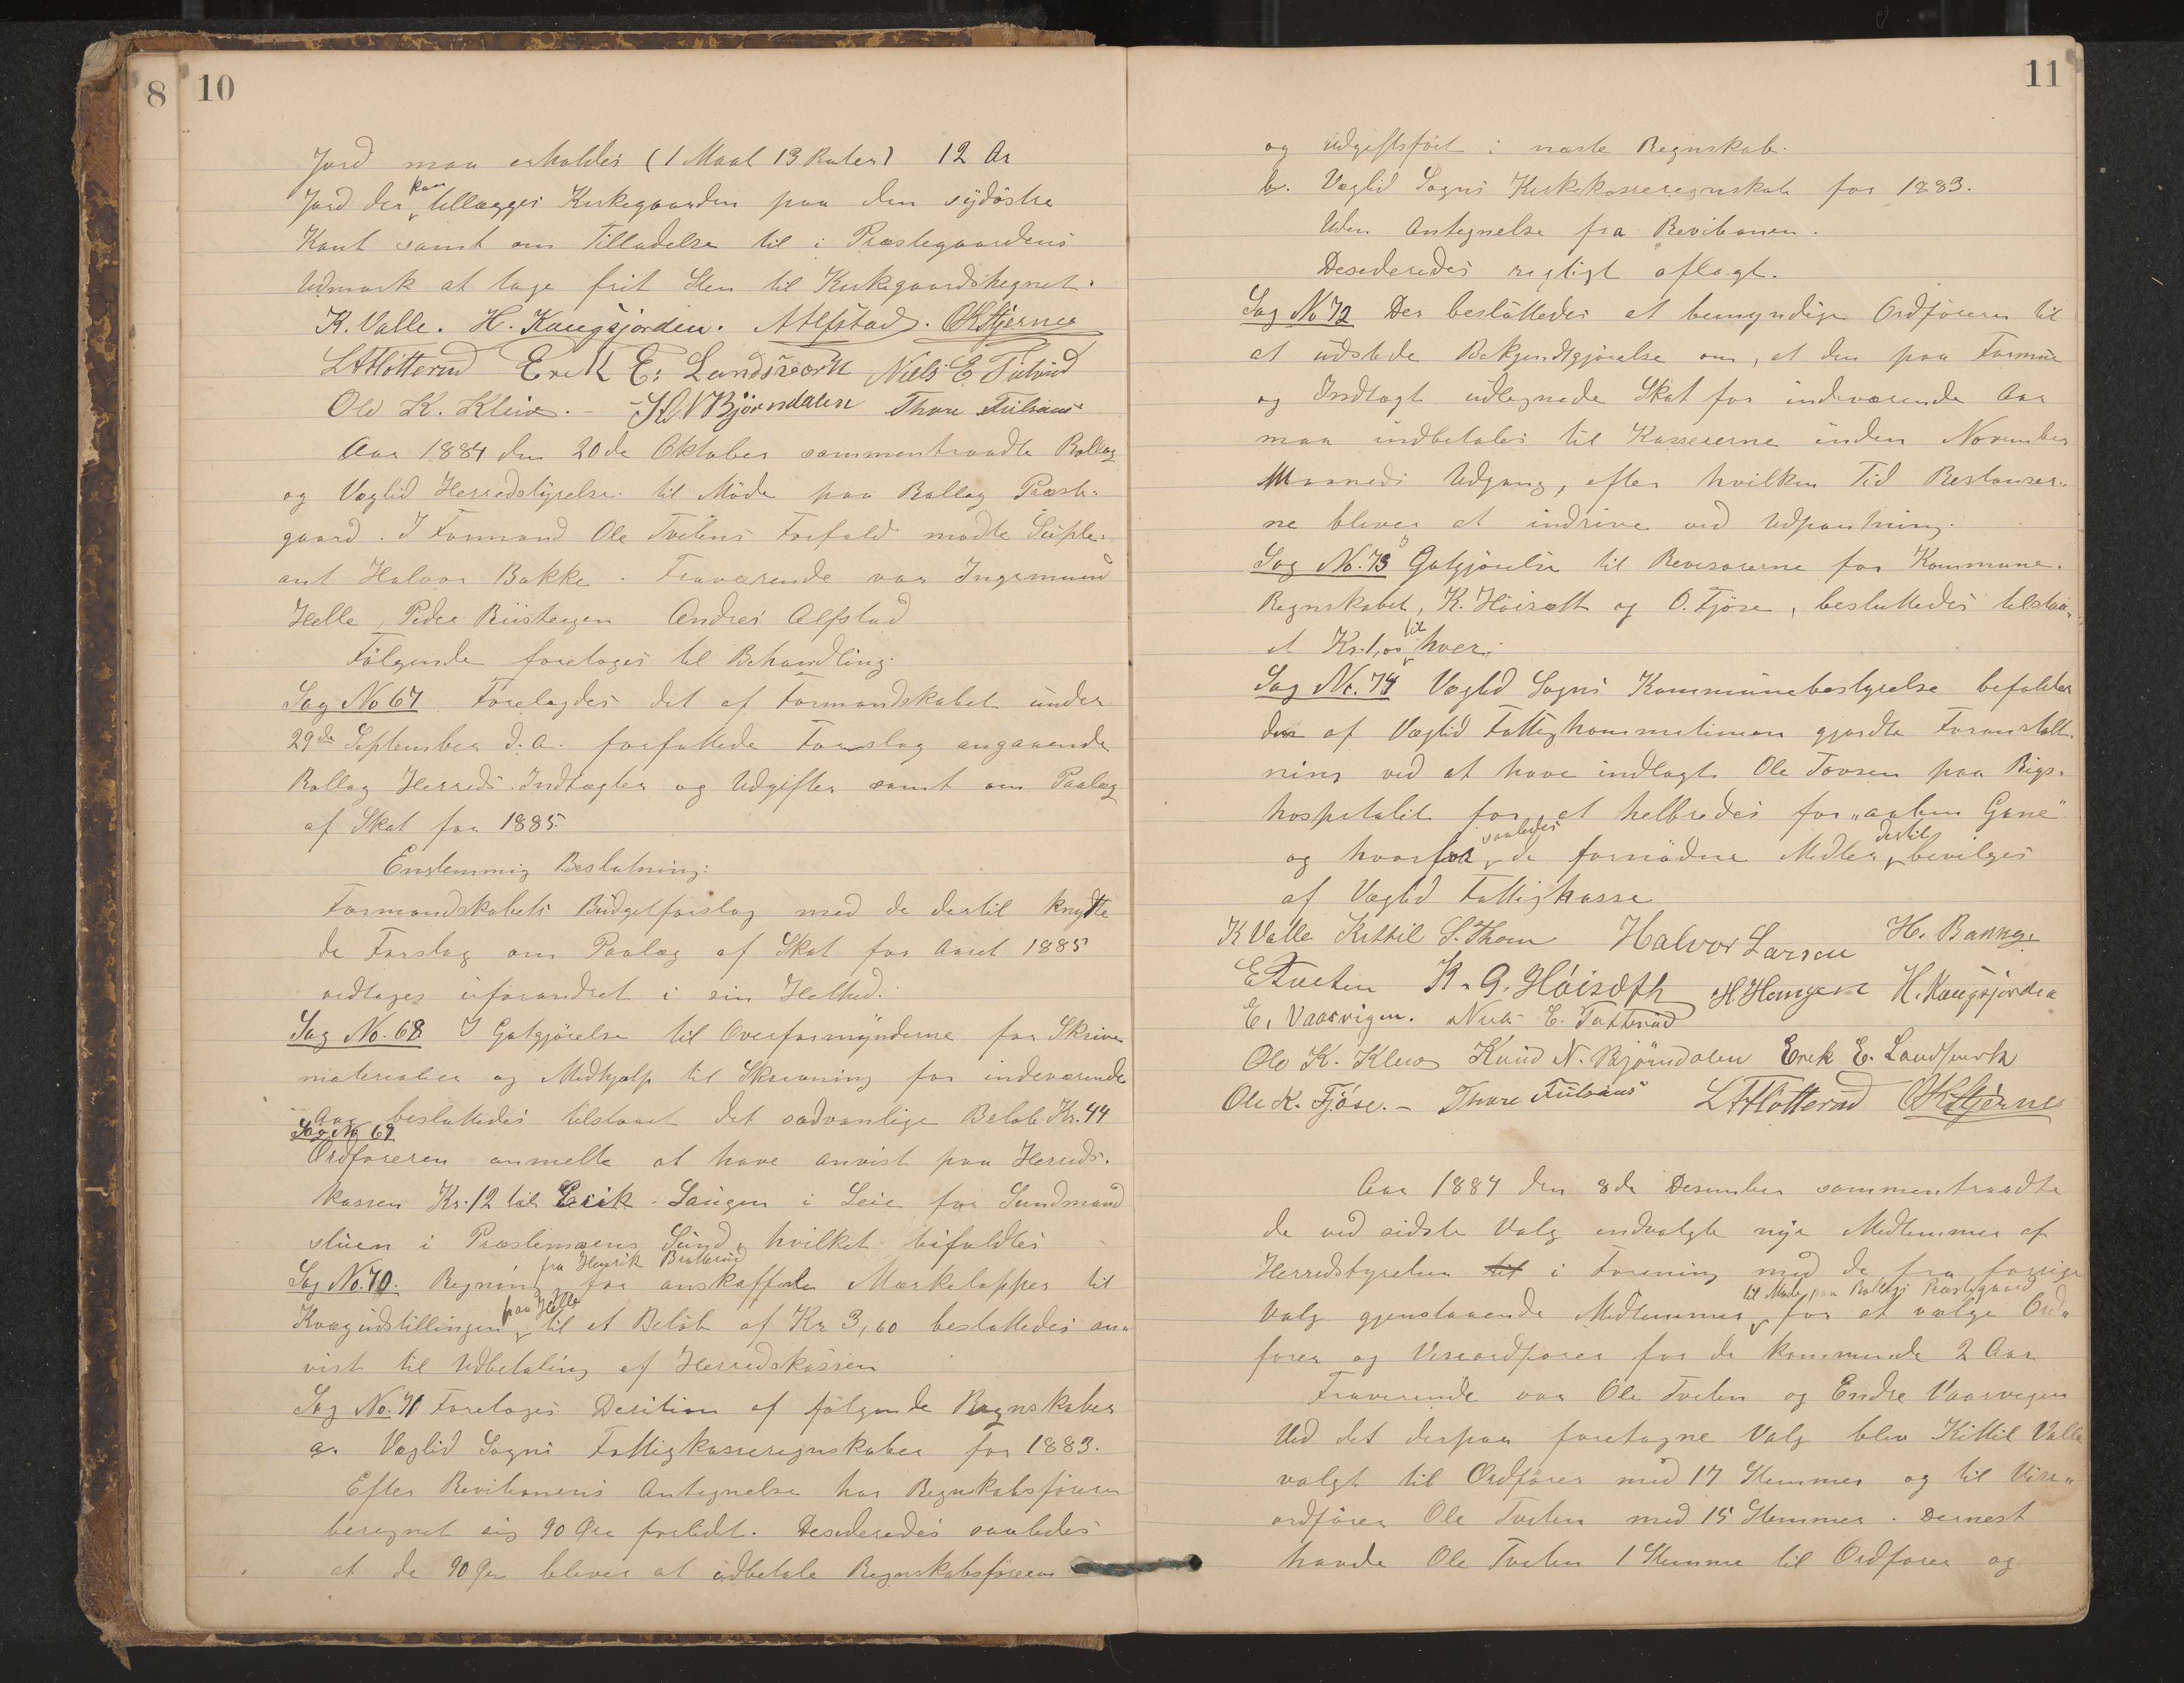 8
10
Jord maa erholdes (1 Maal 13 Ruter) 12 Ar
Jord der kan tillægges Kirkegaarden paa den sydöstre
Kant samt om Tilladelse til i Præstegaardens
Udmark at tage frit Sten til Kirkegaardshegnet.
K. Valle. H. Kaugsjorden. A Alfstad. OKStjernes
LAFlötterud Erik E. Landsverk Niels E
Ole K. Kleiv. - Kd N Björndalen Thore
Aar 1884 den 20de Oktober sammentraadte Rollag
og Væglid Herredstyrelse til Möde paa Rollag Præste-
gaard. I Formand Ole Tvetens Forfald mødte Suple-
ant Halvor Bakke. Fraværende var Ingemund
Helle, Peder Andres Alfstad
Fölgende foretoges til Behandling.
Sag No 67 Forelagdes det af Formandskabet under
29de September d. A. forfattede Forslag angaaende
Rollag Herreds Indtægter og Udgifter samt om Paalæg
af Skat for 1885.
Enstemmig Beslutning:
Formandskabets Budgetforslag med de dertil knytte
de Forslag om Paalæg af Skat for Aaret 1885
vedtages uforandret i sin Helhed.
Sag No. 68 I Godtgjörelse til Overformynderne for Skrive
materialier og Medhjælp til Skrivning for indeværende
Aar besluttedes tilstaaet det sædvanlige Belöb Kr. 44
Sag No 69
Ordføreren anmelte at have anvist paa Herreds-
kassen Kr. 12 til Erik Laugen i Leie for Sundmand
stuen i Præstemoens Sund, hvilket bifaldtes
Sag No. 70. Regning fra Henrik Bratterud for anskaffede Mærkelapper til
Kvægudstillingen paa Helle til et Belöb af Kr 3,60 besluttedes an-
vist til Udbetaling af Herredskassen
Sag No. 71 Foretoges Desition af fölgende Regnskaber
a. Væglid Sogns Fattigkasseregnskaber for 1883.
Efter Revisionens Antegnelse har Regnskabsföreren
beregnet sig 90 Øre forlidt. Desideredes saaledes
at de 90 Øre bliver at udbetale Regnskabsföreren
11
og udgiftsfört i næste Regnskab.
b. Væglid Sogns Kirkekasseregnskab for 1883.
Uden Antegnelse fra Revisionen.
Desideredes rigtigt aflagt.
Sag No 72 Der besluttedes at bemyndige Ordföreren til
at udstede Bekjendtgjörelse om, at den paa Formue
og Indtægt udlignede Skat for indeværende Aar
maa indbetales til Kassererne inden November
Maaneds Udgang, efter hvilken Tid Restanser-
ne bliver at indrive ved Udpantning.
Sag No. 73 Godtgjörelse til Revisorerne for Kommune-
Regnskabet, K. Höisæth og O. Fjöse, besluttedes tilstaa-
et Kr. 1,00 til hver.
Sag No. 74 Væglid Sogns Kommunebestyrelse bifalder
den af Væglid Fattigkommission gjordte Foranstalt-
ning ved at have indlagt Ole Tovsen paa Rigs-
hospitalet for at helbredes for „aaben Gane"
og hvorfor saaledes de fornödne Midler dertil bevilges
af Væglid Fattigkasse
K Valle Kittil S. Thom Halvor Larsen H. Bakke
E Tveten K. G. Höisæth H Haugen H. Kaugsjorden
E. Vaarvigen. Niels E.
Ole K. Kleiv Knud N. Björndalen Erik E. Landsverk
Ole K. Fjöse. - Thore LAFlötterud OKStjernes
Aar 1884 den 8de Desember sammentraadte
de ved sidste Valg indvalgte nye Medlemmer af
Herredstyrelsen til i Forening med de fra forrige
Valg gjenstaaende Medlemmer til Möde paa Rollags Præstegaard for at vælge Ord-
förer og Viseordförer for de kommende 2 Aar
Fraverende var Ole Tveten og Endre Vaarvigen
Ved det derpaa foretagne Valg blev Kittil Valle
valgt til Ordförer med 17 Stemmer og til Vise-
ordförer Ole Tveten med 15 Stemmer. Dernest
havde Ole Tveten 1 Stemme til Ordförer og